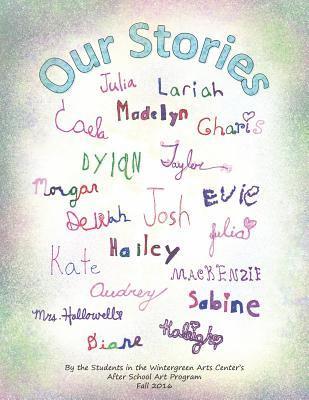 Our Stories
Julia Lariah
Caela Madelyn Charis
DYlAN Taylor
Morgan EViE
Delilah Josh Julia
Kate Hailey
MACKENZIE
Audrey Sabine
Mrs. Hallowell
Diane Haleigh
By the Students in the Wintergreen Arts Center's
After School Art Program
Fall 2016